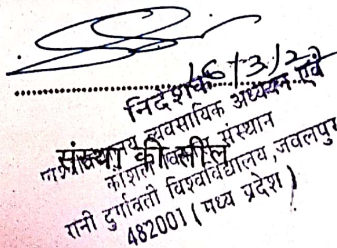 16/3/22
निदेशक
व्यवसायिक अध्ययन एवं
संस्था की सील
कौशल विकास संस्थान
रानी दुर्गावती विश्वविद्यालय, जबलपुर
482001 (मध्य प्रदेश)